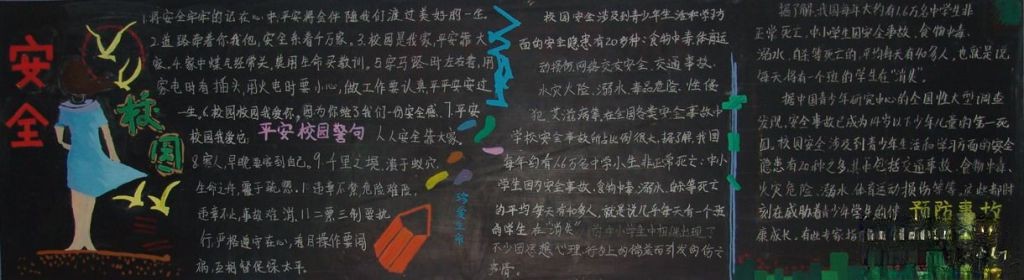 安全
校园
1.将安全牢牢的记在心中,平安将会伴随我们渡过美好的一生。
2.道路牵着你我他,安全系着千万家。3.校园是我家,平安靠大
家。4.家中煤气经常关,莫用生命买教训。5.穿马路时左右看,用
家电时有插头,用火电时要小心,做工作要认真,平平安安过
一生。6.校园校园我爱你,因为你给了我们一份安全感。7.平安
校园我爱它
平安校园警句
人人安全靠大家。
8.害人,早晚要害到自己。9.千里之堤,溃于蚁穴。
生命之舟,覆于疏忽。
违章不止,事故难消。
行,严格遵守在心,
病,互相督促保太平。
校园安全涉及到青少年生活和学习方
面的安全隐患有20多种:食物中毒、体育运
动损伤、网络交友安全、交通事故、
水灾火险、溺水、毒品危险、性侵
犯、艾滋病等。在全国各类安全事故中
学校安全事故所占比例很大。据了解,我国
每年约有1.6万名中学小生非正常死亡:中小
学生因为安全事故、食物中毒、溺水、自杀等死亡
的平均每天有40多人,就是说几乎每天有一个班
的学生在“消失”
不少因思想、心理、行为上的偏差而引发的伤亡
事情。
据了解,我国每年大约有1.6万名中学生非
正常死亡,中小学生因安全事故、食物中毒、
溺水、自杀等死亡的,平均每天有40多人,也就是说
每天将有一个班的学生在“消失”。
据中国青少年研究中心的全国性大型调查
发现,安全事故已成为14岁以下少年儿童的第一死
因。校园安全涉及到青少年生活和学习方面的安全
隐患有20种之多,其中包括交通事故、食物中毒、
火灾危险、溺水、体育运动损伤等等,这些都时
刻在威胁着青少年学生的健
预防事故
康成长。有些专家指